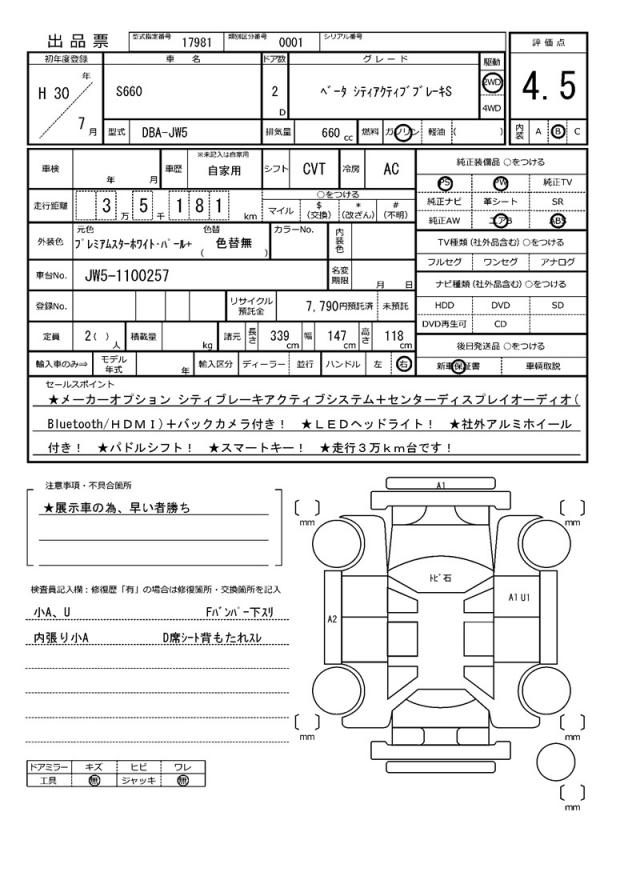 出品票 型式指定番号 17981 類別区分番号 0001 シリアル番号
評価点
初年度登録 車名 ドア数 グレード 駆動
H 30 年 7 月 S660 2 D ベータ シティアクティブブレーキS 2WD 4WD
4.5
型式 DBA-JW5 排気量 660 cc 燃料 ガソリン 軽油 ( )
内装 A B C
車検 年 月 車歴 ※未記入は自家用 自家用 シフト CVT 冷房 AC
走行距離 3 万 5 千 1 8 1 km
○をつける
マイル $(交換) *(改ざん) #(不明)
外装色 元色 プレミアムスターホワイト・パール+ 色替 ( 色替無 ) カラーNo. 内装色
車台No. JW5-1100257 名変期限 月 日
登録No. リサイクル預託金 7,790円預託済 未預託
定員 2( ) 人 積載量 kg 諸元 長さ 339 cm 幅 147 cm 高さ 118 cm
輸入車のみ⇒ モデル年式 年 輸入区分 ディーラー 並行 ハンドル 左 右
純正装備品 ○をつける
PS PW 純正TV
純正ナビ 革シート SR
純正AW エアB ABS
TV種類 (社外品含む) ○をつける
フルセグ ワンセグ アナログ
ナビ種類 (社外品含む) ○をつける
HDD DVD SD
DVD再生可 CD
後日発送品 ○をつける
新車保証書 車輌取説
セールスポイント
★メーカーオプション シティブレーキアクティブシステム+センターディスプレイオーディオ(
Bluetooth/HDMI)+バックカメラ付き! ★LEDヘッドライト! ★社外アルミホイール
付き! ★パドルシフト! ★スマートキー! ★走行3万km台です!
注意事項・不具合箇所
★展示車の為、早い者勝ち
検査員記入欄:修復歴「有」の場合は修復箇所・交換箇所を記入
小A、U Fバンパー下スリ
内張り小A D席シート背もたれスレ
ドアミラー キズ ヒビ ワレ
工具 無 ジャッキ 無
A1
トビ石
A2
A1 U1
mm
mm
mm
mm
mm